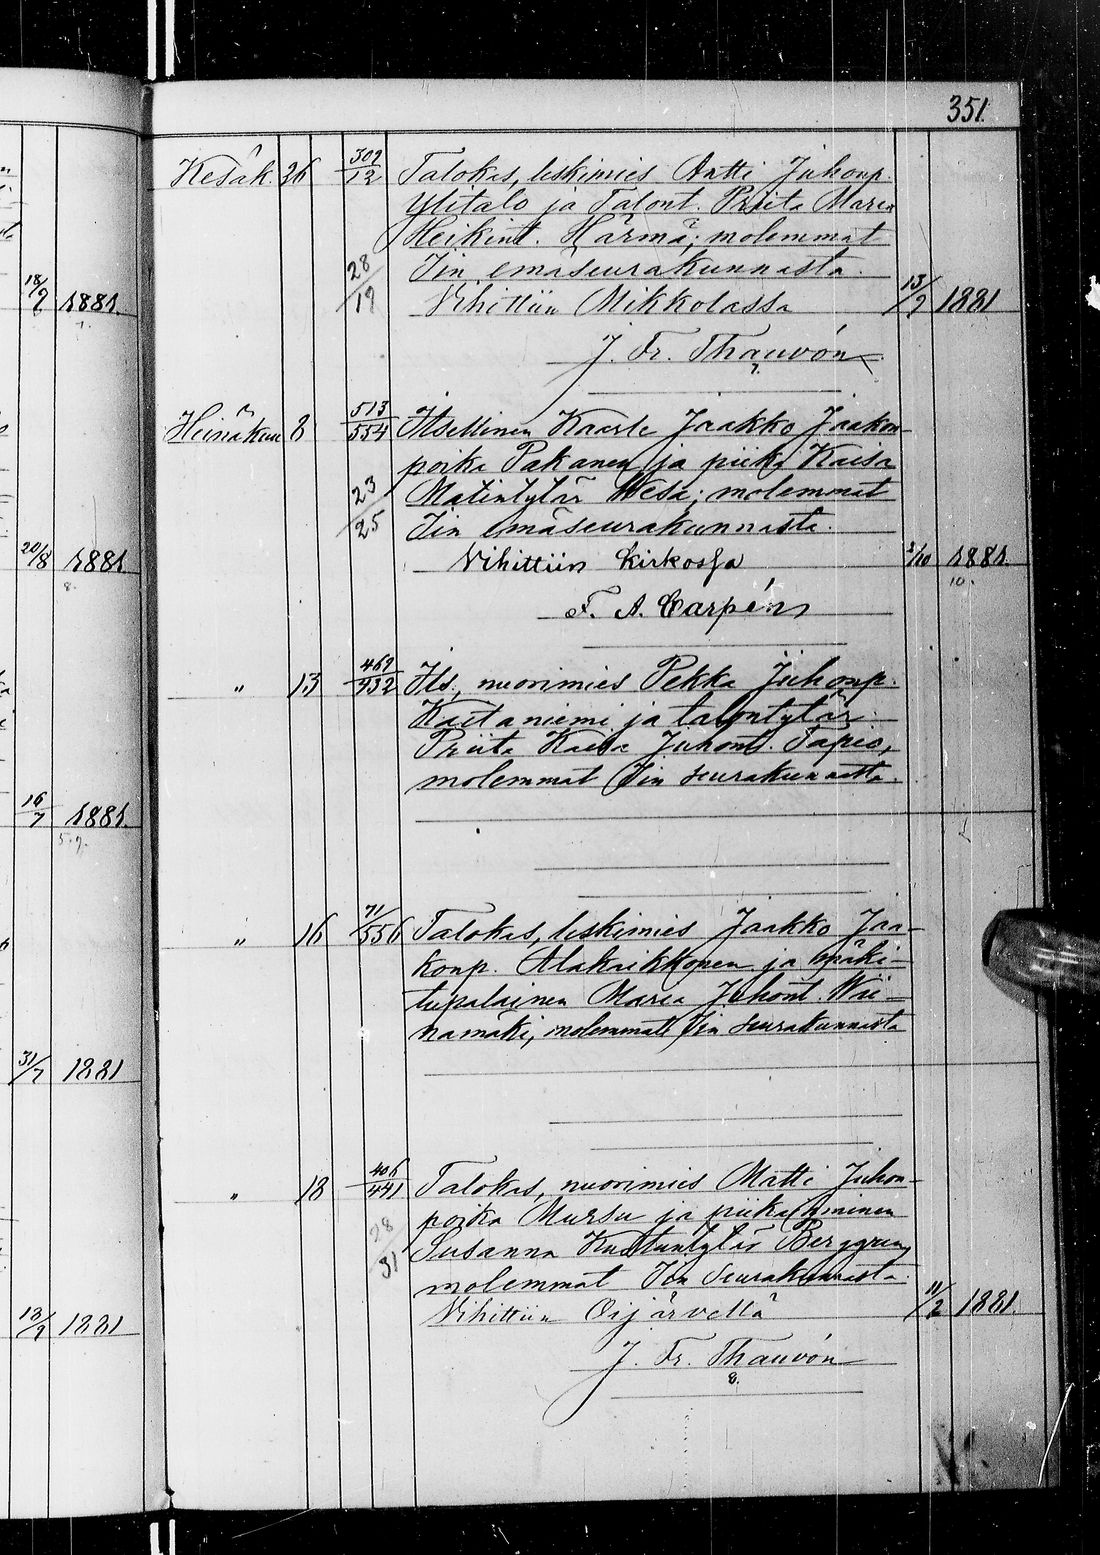 351.
Kesäk. 26 309/12 Talokas, leskimies Antti Juhonp.
Ylitalo ja Talont. Priita Maria
Heikint. Härmä; molemmat
28/19 Iin emäseurakunnasta.
Vihittiin Mikkolassa 13/7 1881
J. Fr. Thauvón
7.
Heinäkuu 8 513/554 Itsellinen Kaarle Jaakko Jaakon-
poika Pakanen ja piika Kaisa
23/25 Matintytär Wesa; molemmat
Iin emäseurakunnasta.
Vihittiin Kirkossa 2/10 1881.
10.
F. A. Carpén
" 13 469/432 Its, nuorimies Pekka Juhonp.
Kastaniemi ja talontytär
Priita Kaisa Juhont. Tapio,
molemmat Iin seurakunnasta.
" 16 71/556 Talokas, leskimies Jaakko Jaa-
konp. Alakaikkonen ja mäki-
tupalainen Maria Juhont. Wii-
namäki, molemmat Iin seurakunnasta
" 18 406/441 Talokas, nuorimies Matti Juhon-
poika Mursu ja piikaihminen
28/31 Susanna Kustuntytär Berggren,
molemmat Iin Seurakunnasta.
Vihittiin Oijärvellä 11/8 1881.
J. Fr. Thauvón
8.
18/7 1881.
20/8 1881.
8.
16/7 1881.
31/7 1881
13/7 1881